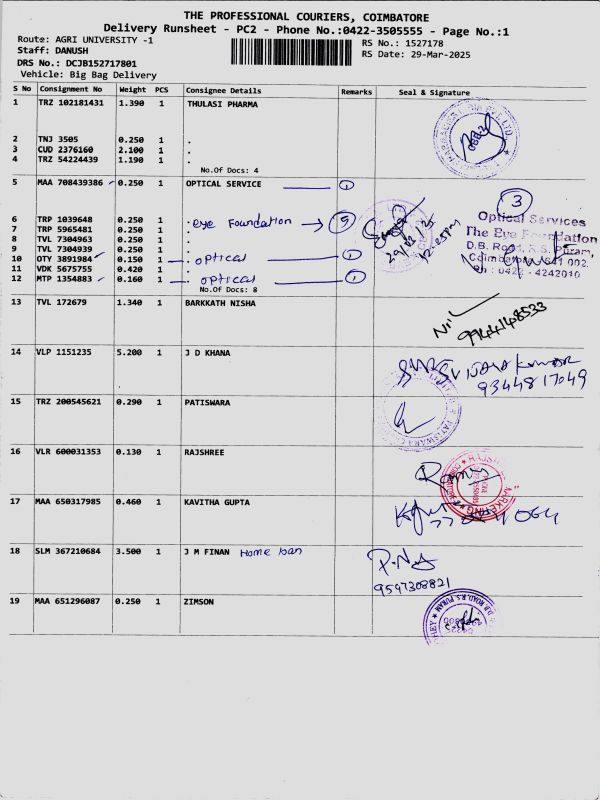 THE PROFESSIONAL COURIERS, COIMBATORE
Delivery Runsheet - PC2 - Phone No.:0422-3505555 - Page No.:1
Route: AGRI UNIVERSITY -1
RS No.: 1527178
Staff: DANUSH
RS Date: 29-Mar-2025
DRS No.: DCJB152717801
Vehicle: Big Bag Delivery
S No Consignment No Weight PCS Consignee Details Remarks Seal & Signature
1 TRZ 102181431 1.390 1 THULASI PHARMA
2 TNJ 3505 0.250 1 .
3 CUD 2376160 2.100 1 .
4 TRZ 54224439 1.190 1 .
No.Of Docs: 4
5 MAA 708439386 0.250 1 OPTICAL SERVICE 1
3
Optical Services
The Eye Foundation
D.B. Road, R.S. Puram,
Coimbatore - 641 002.
Ph : 0422 - 4242010
6 TRP 1039648 0.250 1 . eye Foundation → 5
7 TRP 5965481 0.250 1 .
8 TVL 7304963 0.250 1 .
9 TVL 7304939 0.250 1 .
10 OTY 3891984 0.150 1 . optical 1
11 VDK 5675755 0.420 1 .
12 MTP 1354883 0.160 1 . optical 1
No.Of Docs: 8
13 TVL 172679 1.340 1 BARKKATH NISHA
9944148533
14 VLP 1151235 5.200 1 J D KHANA
9344817049
15 TRZ 200545621 0.290 1 PATISWARA
16 VLR 600031353 0.130 1 RAJSHREE
17 MAA 650317985 0.460 1 KAVITHA GUPTA
18 SLM 367210684 3.500 1 J M FINAN Home loan
9597308821
19 MAA 651296087 0.250 1 ZIMSON